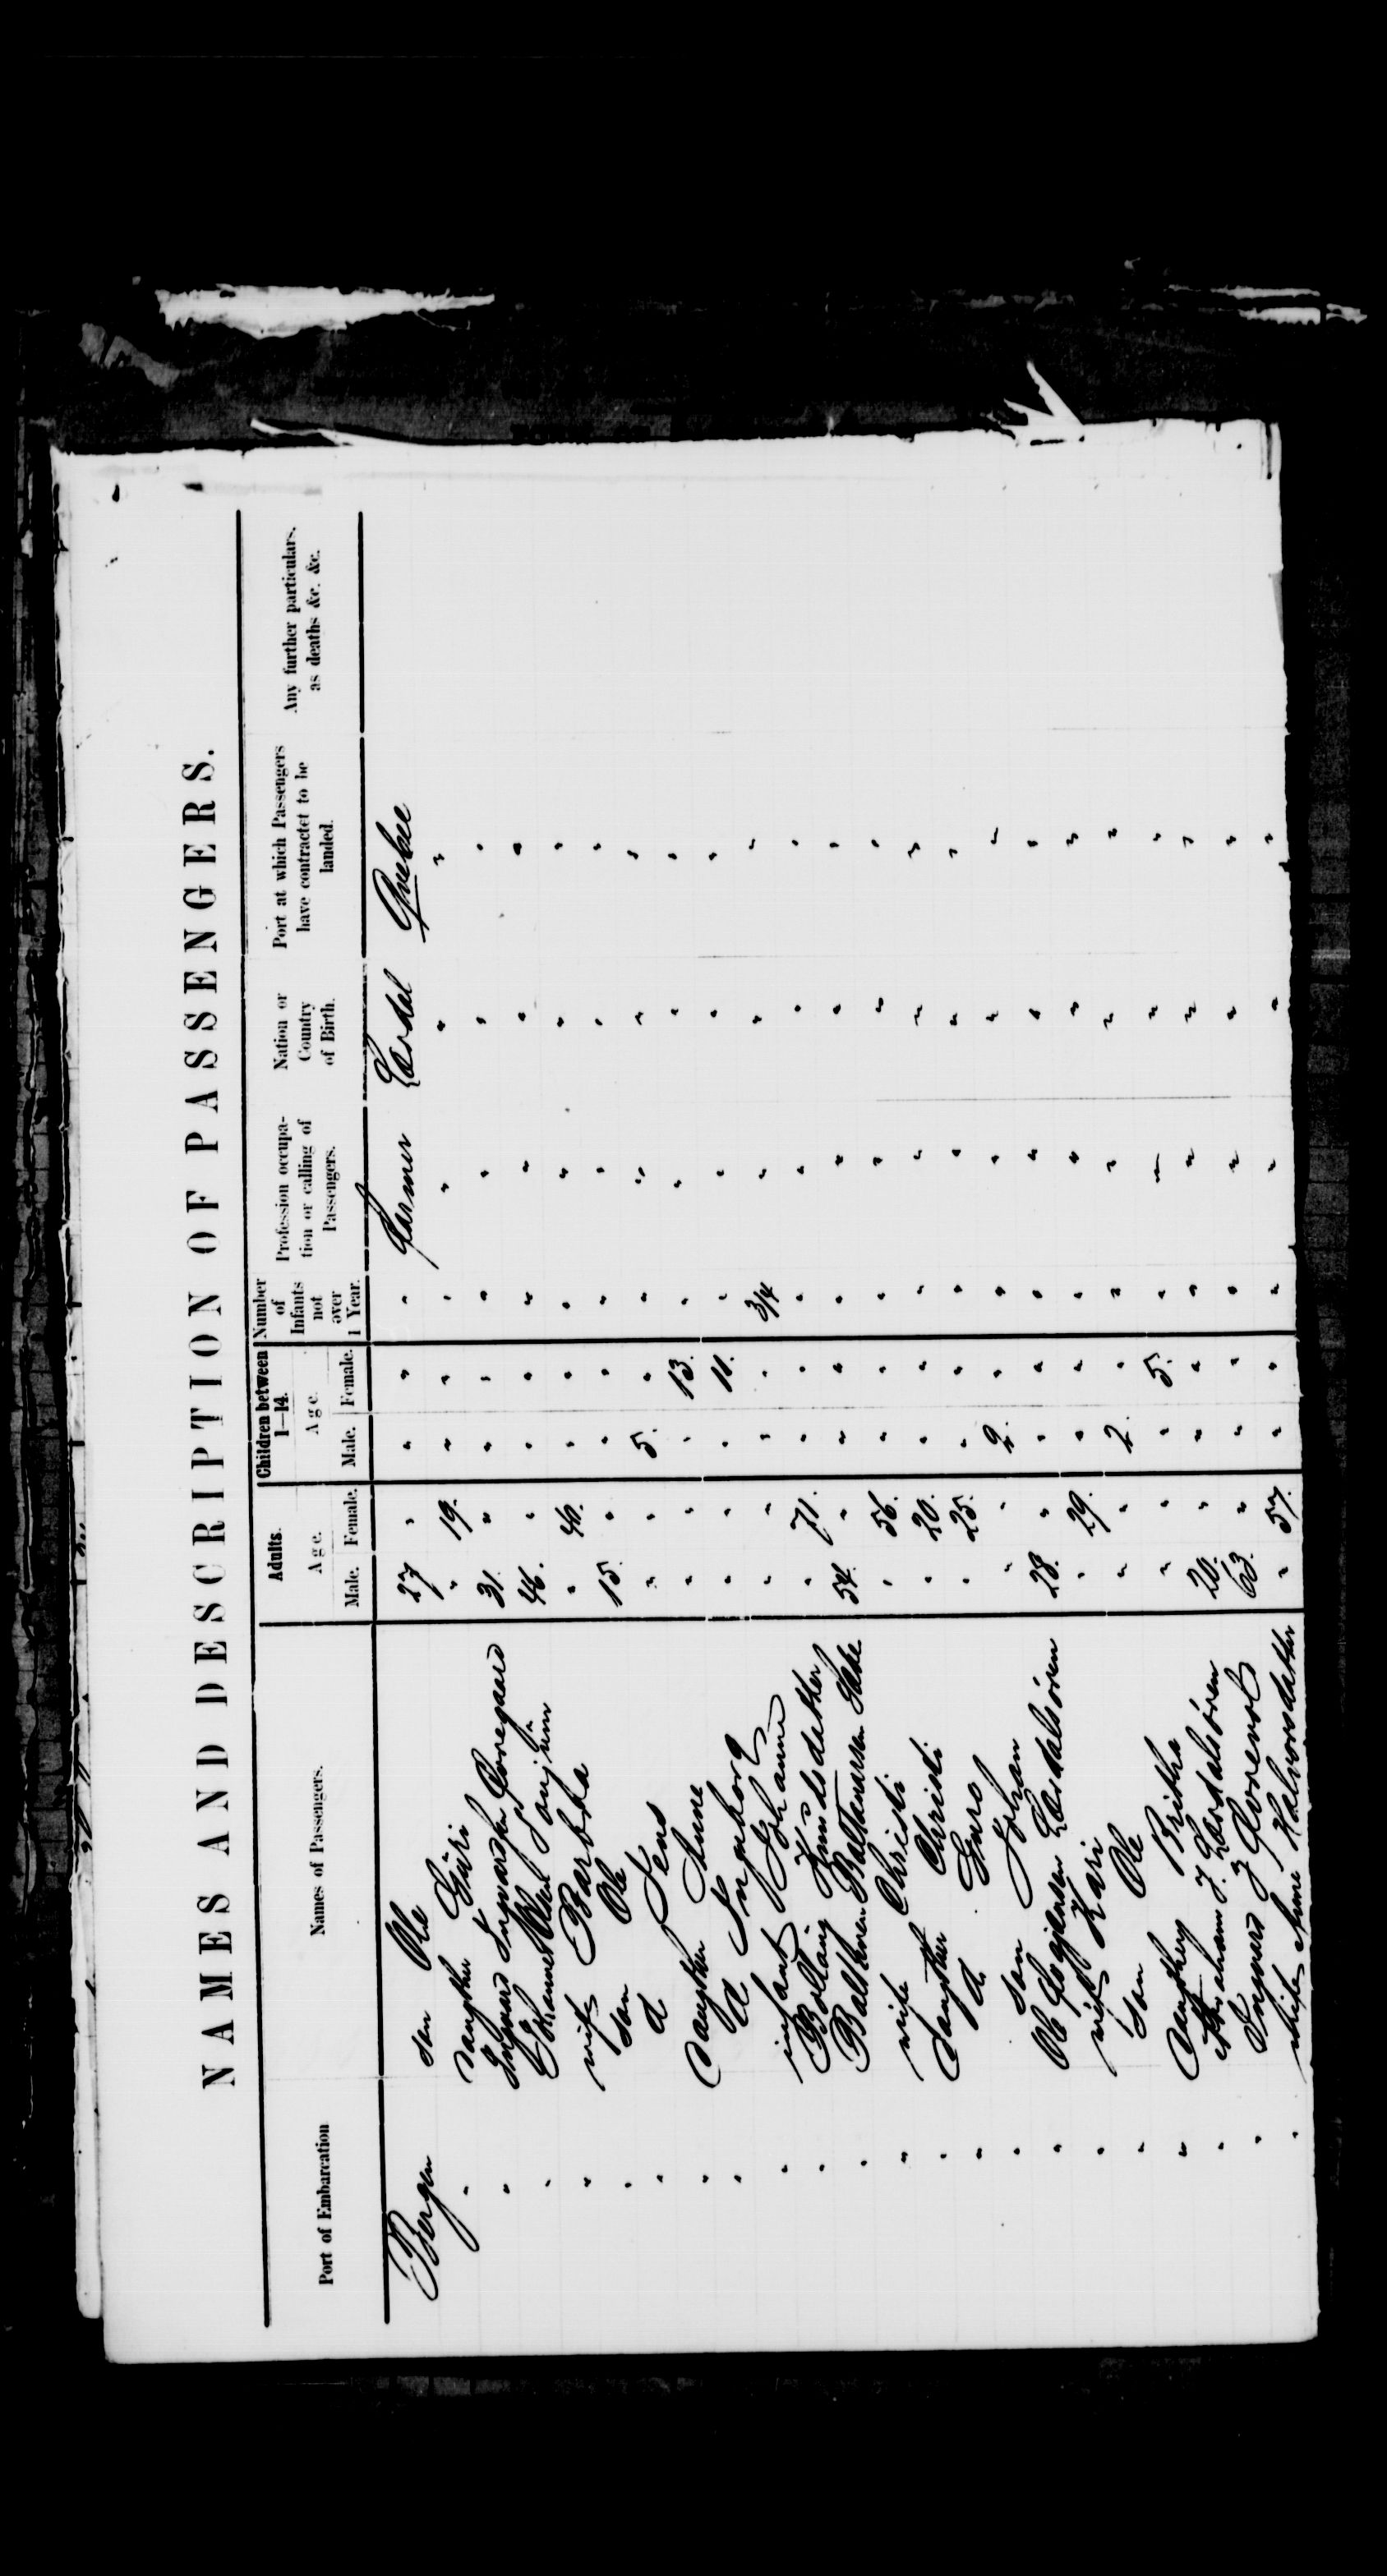 NAMES AND DESCRIPTION OF PASSENGERS.
Port of Embarcation
Names of Passengers.
Adults.
Age.
Male. Female.
Children between 1—14.
Age.
Male. Female.
Number of Infants not over 1 Year.
Profession occupation or calling of Passengers.
Nation or Country of Birth.
Port at which Passengers have contractet to be landed.
Any further particulars. as deaths &c. &c.
Bergen son Ole 27 " " " " Farmer Lærdal Quebec
" daughter Güri " 19. " " " " " "
" Ingvard 31. " " " " " " "
" 46. " " " " " " "
" wife Barbra " 40. " " " " " "
" son Ole 15. " " " " " " "
" d Jens " " 5. " " " " "
" daughter Anne " " " 13. " " " "
" d Ingeborg " " " 11. " " " "
" infant Johanne " " " " 3/4 " " "
" Knudsdatter " 71. " " " " " "
" 54. " " " " " " "
" wife Christi " 56. " " " " " "
" daughter Christi " 20. " " " " " "
" d. Guro " 25. " " " " " "
" son Johan " " 9. " " " " "
" Ole Lærdalsören 28. " " " " " " "
" wife Kari " 29. " " " " " "
" son Ole " " 2. " " " " "
" daughter Britha " " " 5. " " " "
" J. Lærdalsören 20. " " " " " " "
" Ingvard J 63. " " " " " " "
" wife Anne Halvorsdatter " 57. " " " " " "